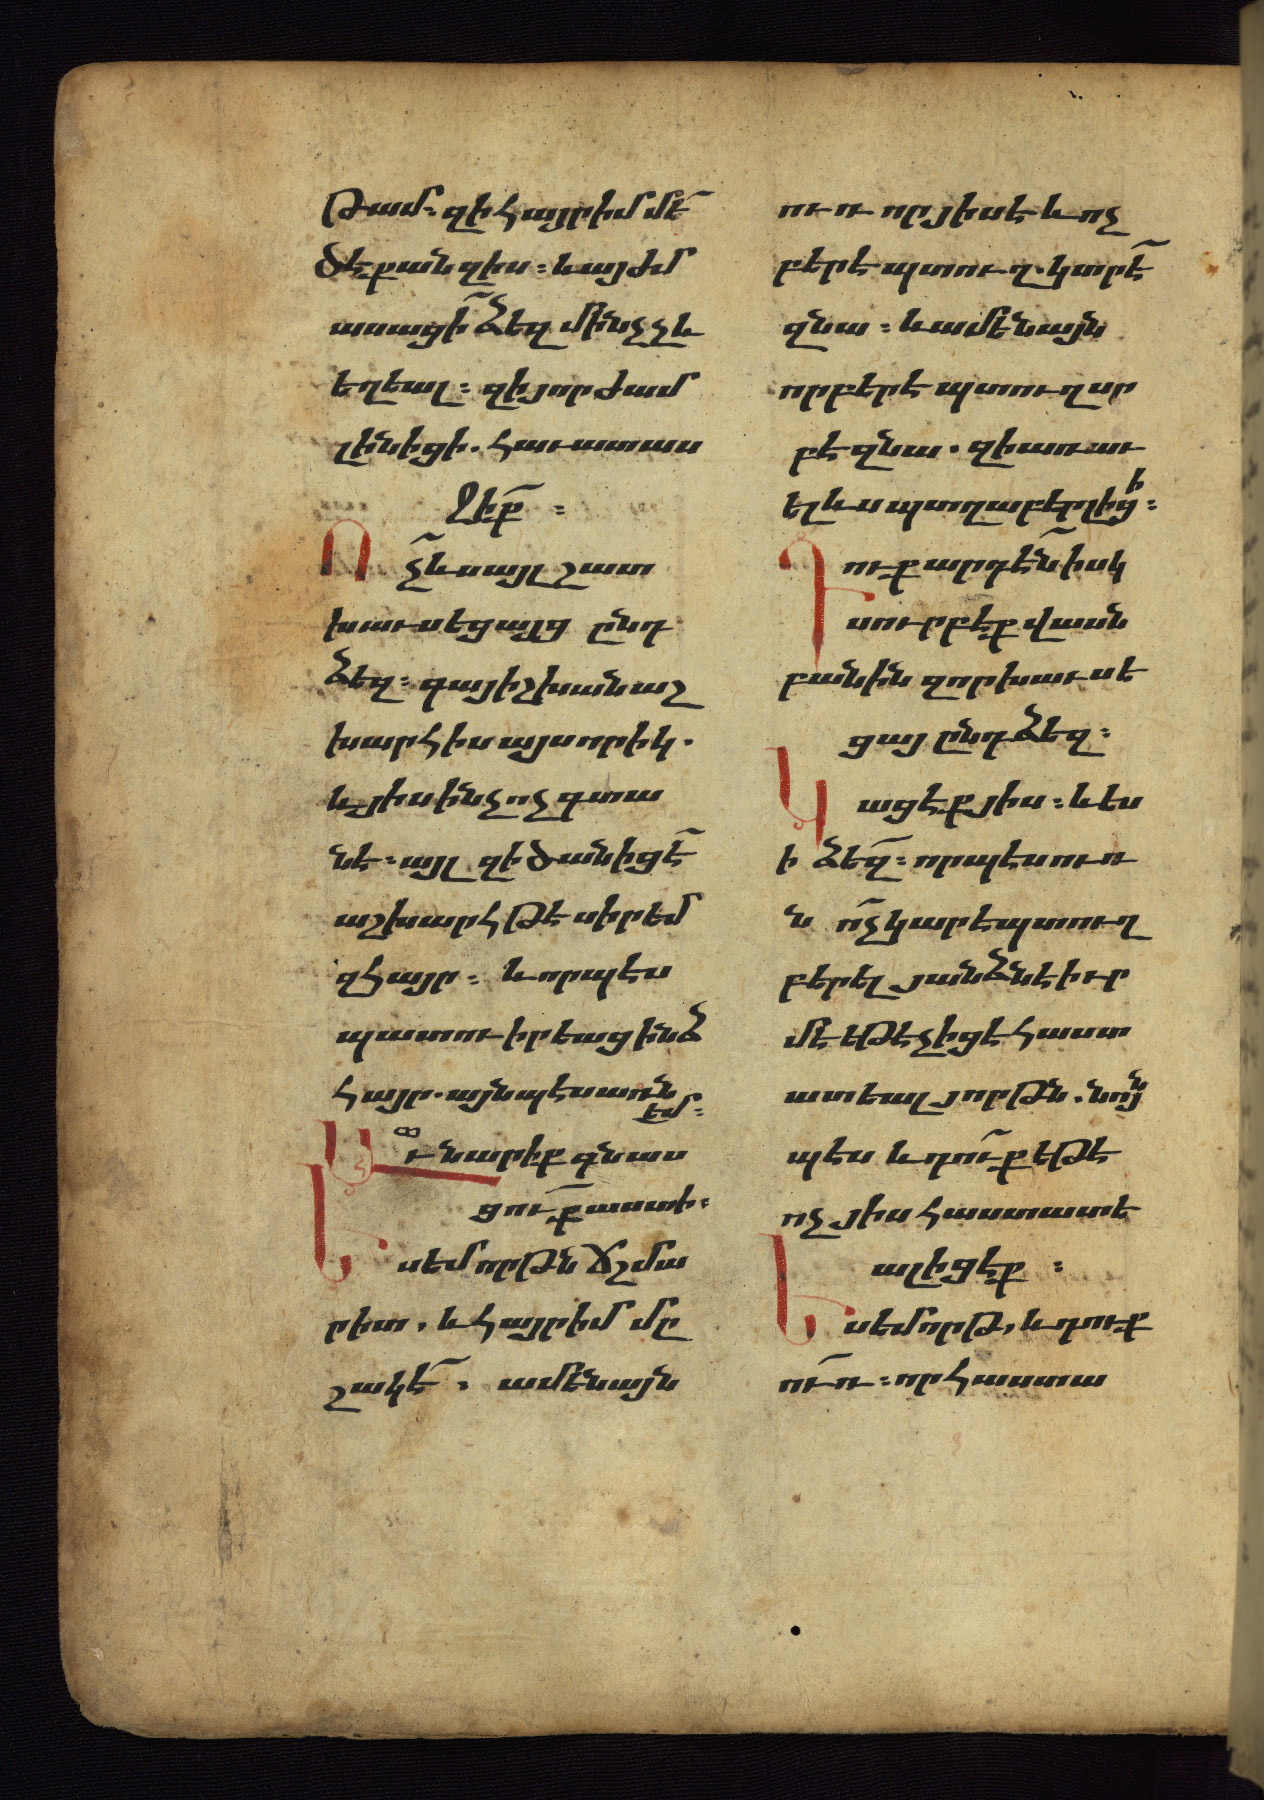 թամ. զի հայր իմ մե
ծ է քան զիս։ և այժմ
ասացի ձեզ մինչչև
եղեալ։ զի յորժամ
լինիցի. հաւատաս
ջիք։
Ոչ ևս այլ շատ
խաւսեցայց ընդ
ձեզ։ գայ իշխան աշ
խարհիս այսորիկ.
և յիս ինչ ոչ գտա
նէ։ այլ զի ծանիցէ
աշխարհ թէ սիրեմ
զհայր։ և որպէս
պատուիրեաց ինձ
հայր. այնպէս առն
եմ։
Աւն արիք գնաս
ցուք աստի։
Ես եմ որթն ճշմա
րիտ. և հայր իմ մը
շակ է. ամենայն
ուռ որ յիս է և ոչ
բերէ պտուղ. կտրէ
զնա։ և ամենայն
որ բերէ պտուղ սր
բէ զնա. զի առաւ
ել ևս պտղաբեր լիցի։
Դուք արդէն իսկ
սուրբ էք վասն
բանին զոր խաւսե
ցայ ընդ ձեզ։
Կացէք յիս։ և ես
ի ձեզ։ որպէս ուռ
ն ոչ կարէ պտուղ
բերել յանձնէ իւր
մէ եթէ չիցէ հաստ
ատեալ յորթն. նոյն
պէս և դուք եթէ
ոչ յիս հաստատե
ալ իցէք։
Ես եմ որթ, և դուք
ուռ։ որ հաստա